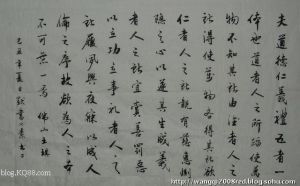 夫道德仁義禮五者一
體也道者人之所蹈使萬
物不知其所由德者人之
所得使萬物各得其所欲
仁者人之所親有慈惠惻
隱之心以遂其生成義
者人之所宜賞善罰惡
以立功立事禮者人之
所履夙興夜寐以成人
倫之序夫欲為人之本
不可無一焉 佛山王
己丑年夏日
blog.KQ88.com
http://wangqi2008red.blog.sohu.com